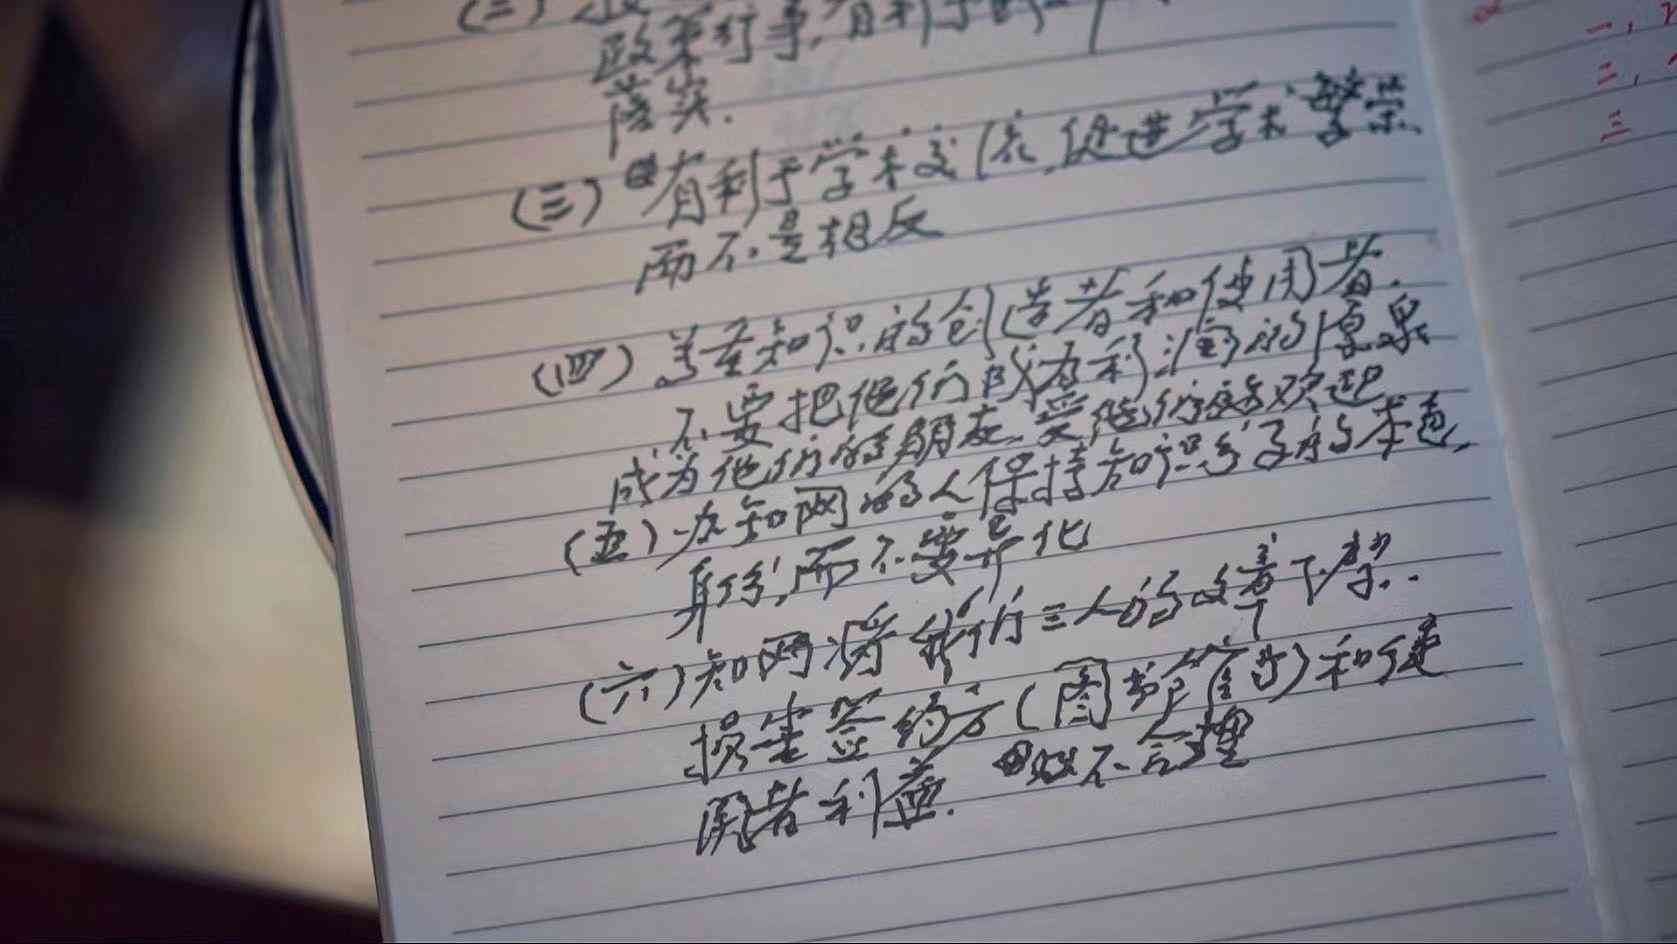 (二)
政策行事,有利于
落实.
(三)有利于学术交流,促进学术繁荣、
而不是相反
(四)善待知识的创造者和使用者.
不要把他们成为利润的源泉
成为他们的朋友,受他们的欢迎
(五)办知网的人保持知识分子的本色,
身份,而不要异化
(六)知网将我们三人的文章下架..
损害签约方(图书馆等)和使
用者利益. 极不合理
一,
二,
三